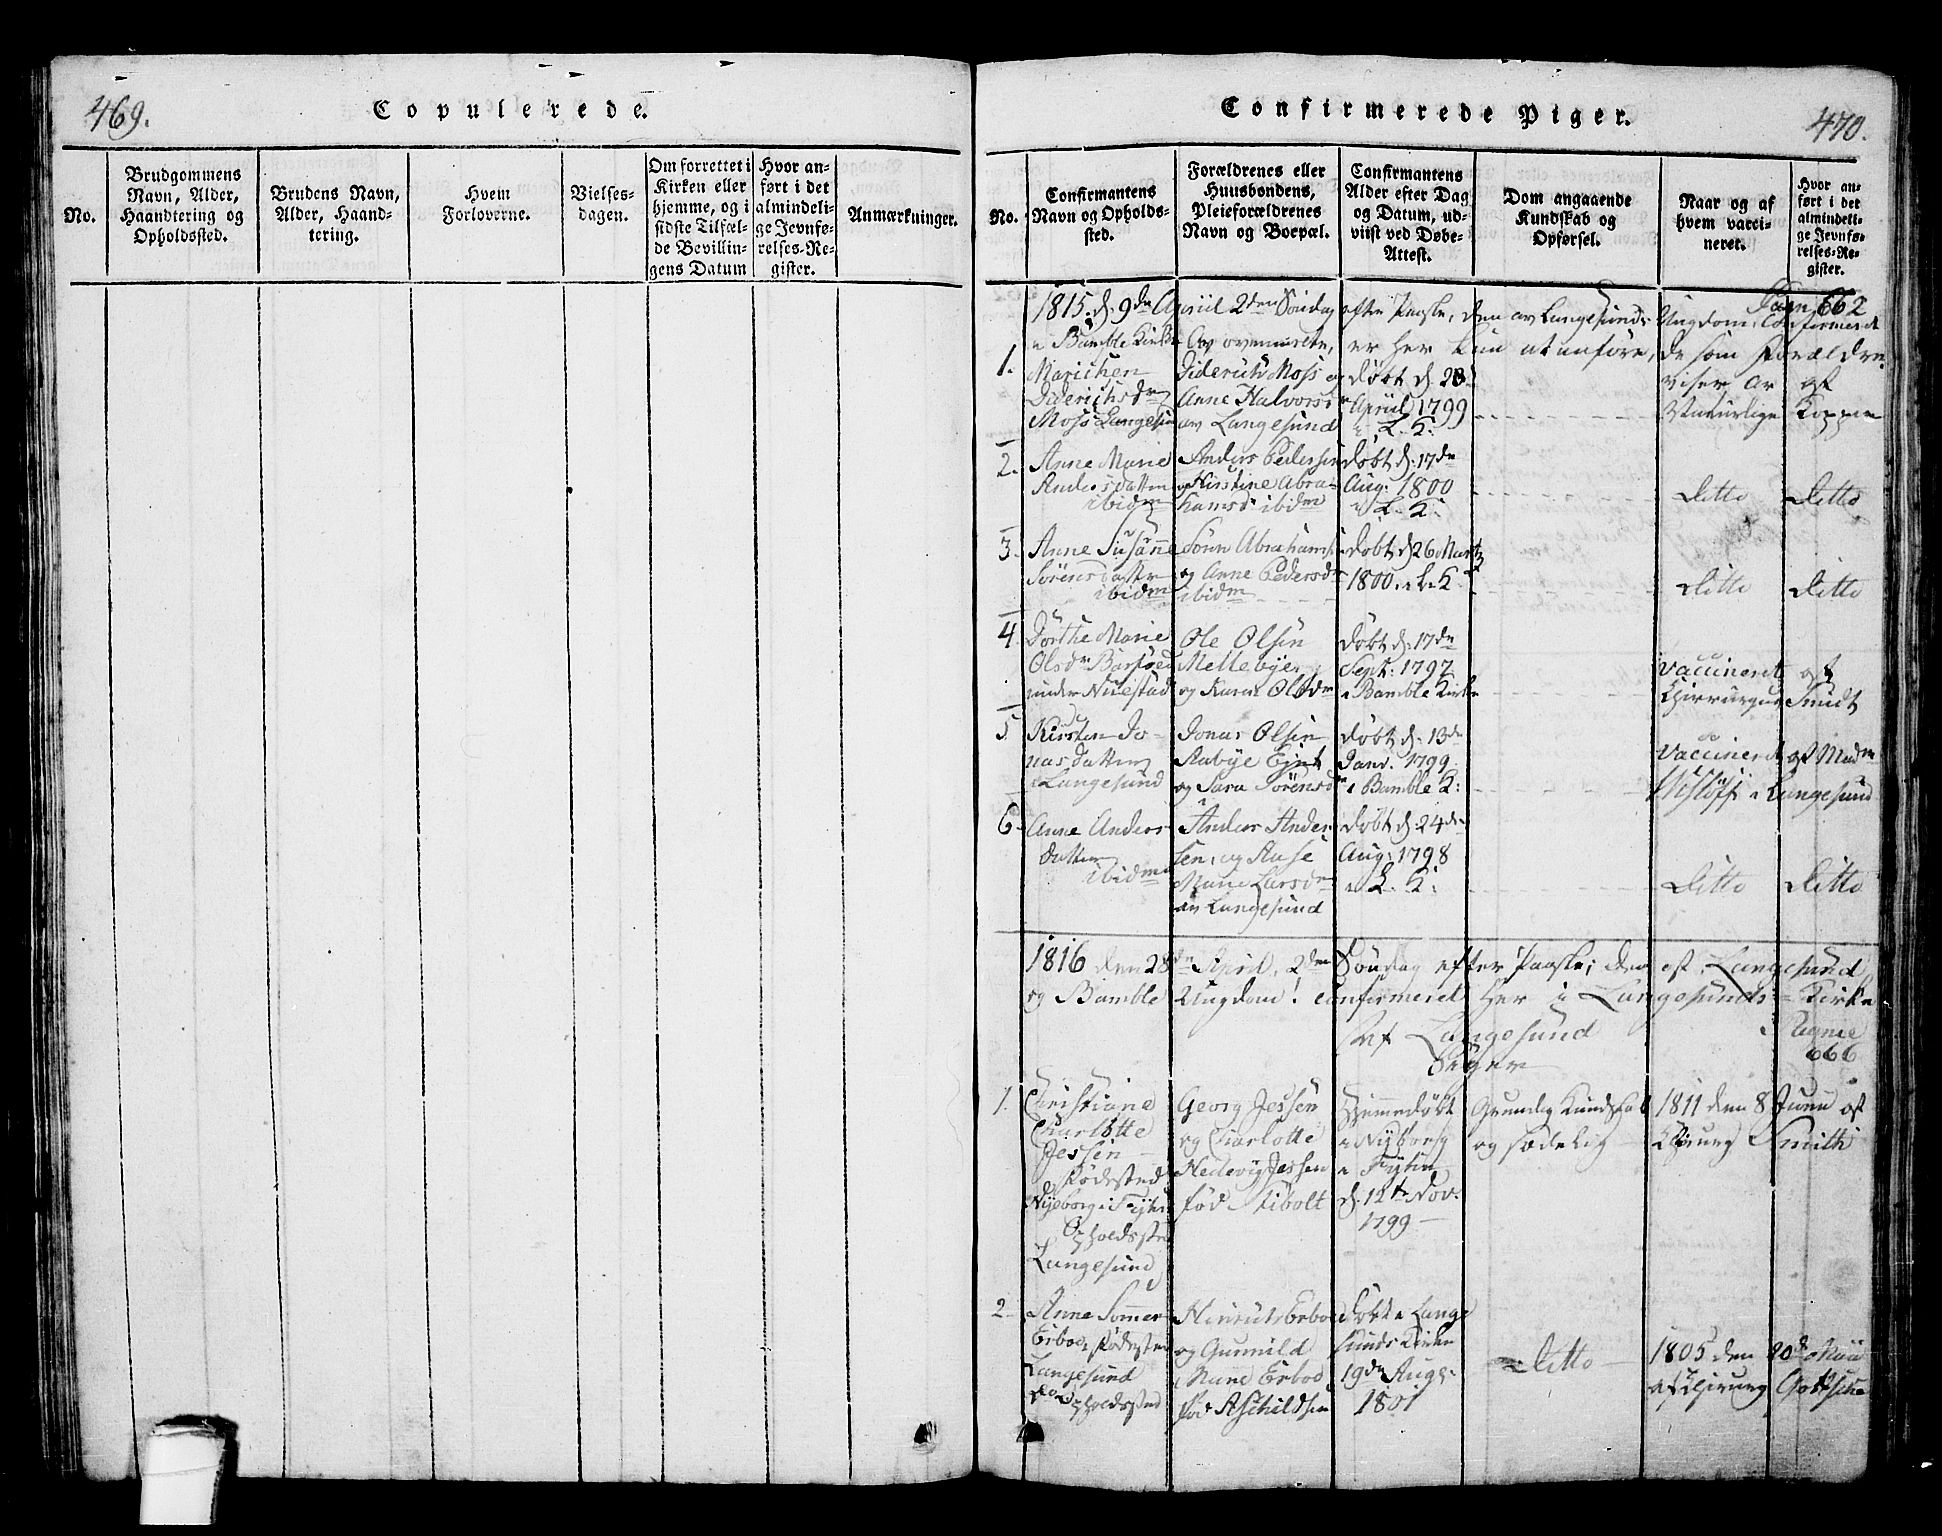 469.
Copulerede.
No.
Brudgommens
Navn, Alder,
Haandtering og
Opholdssted.
Brudens Navn,
Alder, Haand-
tering.
Hvem
Forloverne.
Vielses-
dagen.
Om forrettet i
Kirken eller
hjemme, og i
sidste Tilfæl-
de Bevillin-
gens Datum
Hvor an-
ført i det
almindeli-
ge Jevnfø-
relses-Re-
gister.
Anmærkninger.
Confirmerede Piger.
470.
No.
Confirmantens
Navn og Opholds-
sted.
Forældrenes eller
Huusbondens,
Pleieforældrenes
Navn og Boepæl.
Confirmantens
Alder efter Dag
og Datum, ud-
viist ved Døbe-
Attest.
Dom angaaende
Kundskab og
Opførsel.
Naar og af
hvem vacci-
neret.
Hvor an-
ført i det
almindeli-
ge Jevnfø-
relses-Re-
gister.
Pagn 662
1815. d. 9de Apriil 2den Søndag efter Paaske, den av Langesunds Ungdom, Confirmeret
i Bamble Kirke. Av ovennævnte, er her kun at anføre, de som Forældre
1.
Marichen
Diderichsdr
Moss Langesun
Diderich Moss og
Anne Halvorsdr
av Langesund
døbt d. 28
Apriil 1799
i L. K:
viser av
Naturlige
af
Kopper
2.
Anne Marie
Andersdatter
ibidm
Anders Pedersen
og Kirstine Abra-
hamsd ibidm
døbt d. 17de
Aug: 1800
i L. K:
ditto
ditto
3.
Anne Susanne
Sørensdatter
ibidm
Sören Abrahams:
og Anne Pedersdr
ibidm
døbt d 26 Martz
1800. i L. K.
ditto
ditto
4
Dorthe Marie
Olsdr
under
Ole Olsen
Mellebye
og Karen Olsdr
døbt d. 17de
Sept: 1797
i Bamble Kirke
vaccineret
Chirurgus
af
Smidt
5
Kirsten Jo-
nasdatter
i Langesund
Jonas Olsen
Aabye Ejet
og Sara Sørensdr
døbt d. 13de
Janv. 1799.
i Bamble K:
vaccineret af Madm
i Langesund
6.
Anne Anders-
datter
ibidm
Anders Ander
sen, og Aase
Marie Larsdr
av Langesund
døbt d. 24de
Aug: 1798
i L. K:
ditto
ditto
1816 den 28de April. 2den Søndag efter Paaske; den af Langesund
og Bamble Ungdom! confirmeret her i Langesunds-Kirke
af Langesund
Piger
Pagnie
666
1.
Christiane
Charlotte
Jessen
Fødested
Nyeborg i Fyhn
Opholdssted
Langesund
Georg Jessen
og Charlotte
Hedevig Jessen
fød Stibolt
Hjemmedøbt
i Nyborg
i Fyhn
d. 12te Nov.
1799
Grundig Kundskab
og sædelig
1811 den 8 Junii af
Chirurg Smith
2
Anne
Erboe, Fødested
Langesund
og Opholdssted
Hinrich Erboe
og Gunnild
Marie Erboe
fød Aschildsen
døbt i Lange
sunds Kirke
19de Aug:
1801
ditto
1805 den 20de Maii
af Chirurg Gottsche